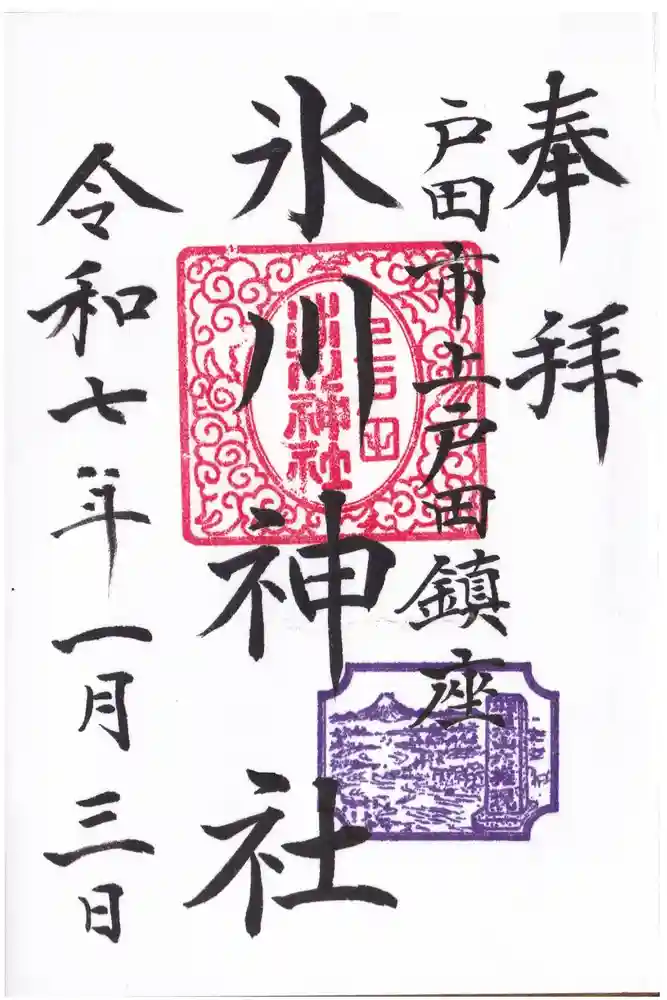 奉拝
戸田市上戸田鎮座
氷川神社
上戸田
氷川神社
令和七年一月三日